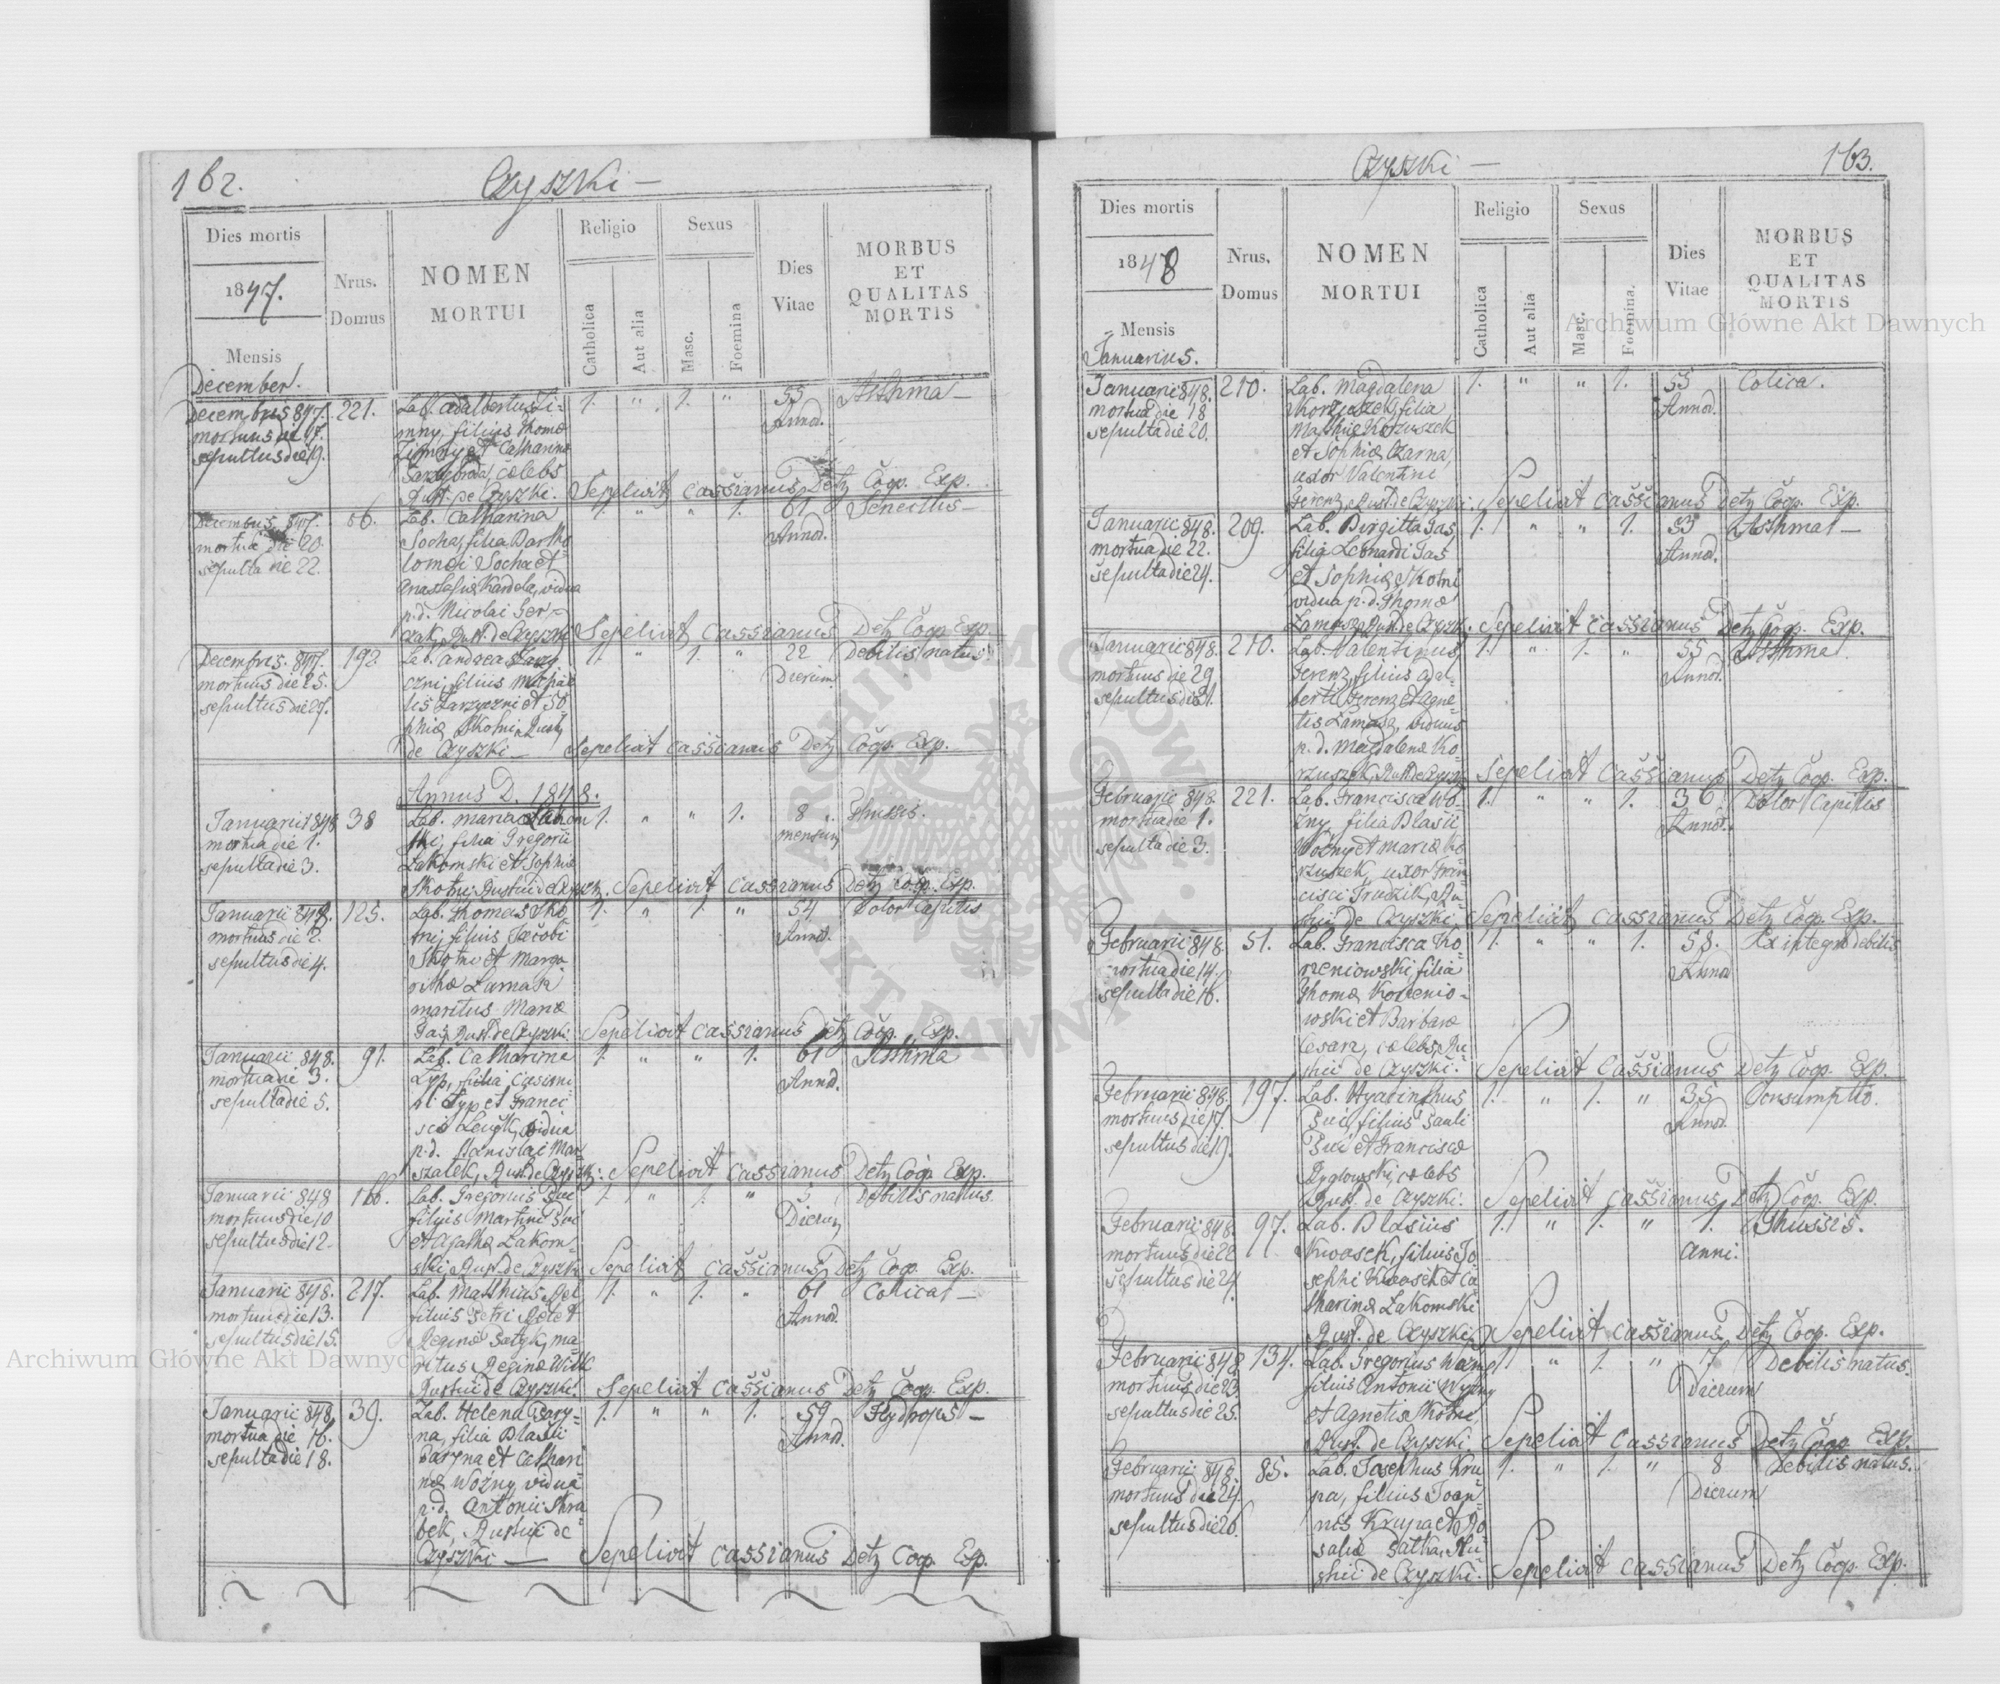 162.
Czyszki —
Dies mortis
1847.
Mensis
December.
Nrus.
Domus
NOMEN
MORTUI
Religio
Catholica
Aut alia
Sexus
Masc.
Foemina
Dies
Vitae
MORBUS
ET
QUALITAS
MORTIS
Decembris 847. 221. Lab. Adalbertus Zi- 1. " 1. " 55 Asthma —
mortuus die 17. mny, filius Thomæ Annor.
sepultus die 19. Zimny et Catharinæ
cælebs
Rust. de Czyszki. Sepelivit Cassianus Detz Coop. Exp.
Decembris 847. 86. Lab. Catharina 1. " " 1. 61 Senectus —
mortua die 20. Socha, filia Bartho Annor.
sepulta die 22. lomæi Socha et
Anastasiæ Kardela, vidua
p. d. Nicolai
Rust. de Czyszki Sepelivit Cassianus Detz Coop. Exp.
Decembris 847. 192. Lab. Andrea 1. " 1. " 22 Debilis natus.
mortuus die 25. filius Dierum
sepultus die 27. et So-
phiæ Skotni, Rust.
de Czyszki — Sepelivit Cassianus Detz Coop. Exp.
Annus D. 1848.
Januarii 1848 38 Lab. Maria Lakom 1. " " 1. 8 Thussis.
mortua die 1. ski, filia Gregorii mensium
sepulta die 3. Lakomski et Sophiæ
Skotni Sepelivit Cassianus Detz Coop. Exp.
Januarii 848. 125. Lab. Thomas Sko 1. " 1. " 54 Dolor Capitis
mortuus die 2. tni, filius Jacobi Annor.
sepultus die 4. Skotni et Marga-
rithæ Lamasz
maritus Mariæ
Rust. de Czyszki. Sepelivit Cassianus Detz Coop. Exp.
Januarii 848. 91. Lab. Catharina 1. " " 1. 61 Asthma
mortua die 3. Typ, filia Casimi Annor.
sepulta die 5. ri Typ et Franci
scæ vidua
p. d. Stanislai Mar-
szalek, Rust. de Czyszki. Sepelivit Cassianus Detz Coop. Exp.
Januarii 848 166. Lab. Gregorius 1. " 1. " 5 Debilis natus.
mortuus die 10 filius Martini Dierum
sepultus die 12. et Agathæ Lakom-
ski, Rust. de Czyszki Sepelivit Cassianus Detz Coop. Exp.
Januarii 848. 217. Lab. Mathias 1. " 1. " 61 Colica —
mortuus die 13. filius Petri et Annor.
sepultus die 15. Reginæ ma-
ritus Reginæ
Rustici de Czyszki. Sepelivit Cassianus Detz Coop. Exp.
Januarii 848. 39. Lab. Helena Pary- 1. " " 1. 59 Hydrops —
mortua die 16. na, filia Blasii Annor.
sepulta die 18. Paryna et Cathari
næ Woźny, vidua
p. d. Antonii Skra
bek, Rustici de
Czyszki — Sepelivit Cassianus Detz Coop. Exp.
Czyszki —
163.
Dies mortis
1848
Mensis
Januarius.
Nrus.
Domus
NOMEN
MORTUI
Religio
Catholica
Aut alia
Sexus
Masc.
Foemina.
Dies
Vitae
MORBUS
ET
QUALITAS
MORTIS
Januarii 848. 210. Lab. Magdalena 1. " " 1. 53 Colica.
mortua die 18 Korzuszek, filia Annor.
sepulta die 20. Mathiæ Korzuszek
et Sophiæ Czarna,
uxor Valentini
Ferenz, Rust. de Czyszki. Sepelivit Cassianus Detz Coop. Exp.
Januarii 848. 209. Lab. Birgitta Gas, 1. " " 1. 53 Asthma —
mortua die 22. filia Leonardi Gas Annor.
sepulta die 24. et Sophiæ Skotni
vidua p. d. Thomæ
Lamasz, Rust. de Czyszk. Sepelivit Cassianus Detz Coop. Exp.
Januarii 848. 210. Lab. Valentinus 1. " 1. " 55 Asthma
mortuus die 29 Ferenz, filius Adal- Annor.
sepultus die 31. berti Ferenz et Agne-
tis Lamasz, viduus
p. d. Magdalenæ Ko-
rzuszek, Rust. de Czyszki Sepelivit Cassianus Detz Coop. Exp.
Februarii 848. 221. Lab. Francisca Wo- 1. " " 1. 36 Dolor Capitis
mortua die 1. źny, filia Blasii Annor.
sepulta die 3. Woźny et Mariæ Ko-
rzuszek, uxor Fran-
cisci Gruzik, Ru-
stici de Czyszki. Sepelivit Cassianus Detz Coop. Exp.
Februarii 848. 51. Lab. Francisca Ko 1. " " 1. 58. Ex integro debilis
mortua die 14. rzeniowski, filia Annor.
sepulta die 16. Thomæ Korzenio-
wski et Barbaræ
Cesarz, cælebs, Ru-
stici de Czyszki. Sepelivit Cassianus Detz Coop. Exp.
Februarii 848. 197. Lab. Hyacinthus 1. " 1. " 35 Consumptio.
mortuus die 17. filius Pauli Annor.
sepultus die 19. et Franciscæ
cælebs
Rust. de Czyszki. Sepelivit Cassianus Detz Coop. Exp.
Februarii 848. 97. Lab. Blasius 1. " 1. " 1. Thussis.
mortuus die 22 Kwasek, filius Jo- Anni.
sepultus die 24. sephi Kwasek et Ca
tharinæ Lakomski
Rust. de Czyszki. Sepelivit Cassianus Detz Coop. Exp.
Februarii 848. 134. Lab. Gregorius 1. " 1. " 17 Debilis natus.
mortuus die 23. filius Antonii Dierum
sepultus die 25. et Agnetis Skotni,
Rust. de Czyszki. Sepelivit Cassianus Detz Coop. Exp.
Februarii 848. 85. Lab. Josephus Kru 1. " 1. " 8 Debilis natus.
mortuus die 24. pa, filius Joan- Dierum
sepultus die 26. nis Krupa et Ro-
saliæ Satka, Ru-
stici de Czyszki. Sepelivit Cassianus Detz Coop. Exp.
Archiwum Główne Akt Dawnych
Archiwum Główne Akt Dawnych
ARCHIWUM GŁÓWNE AKT DAWNYCH